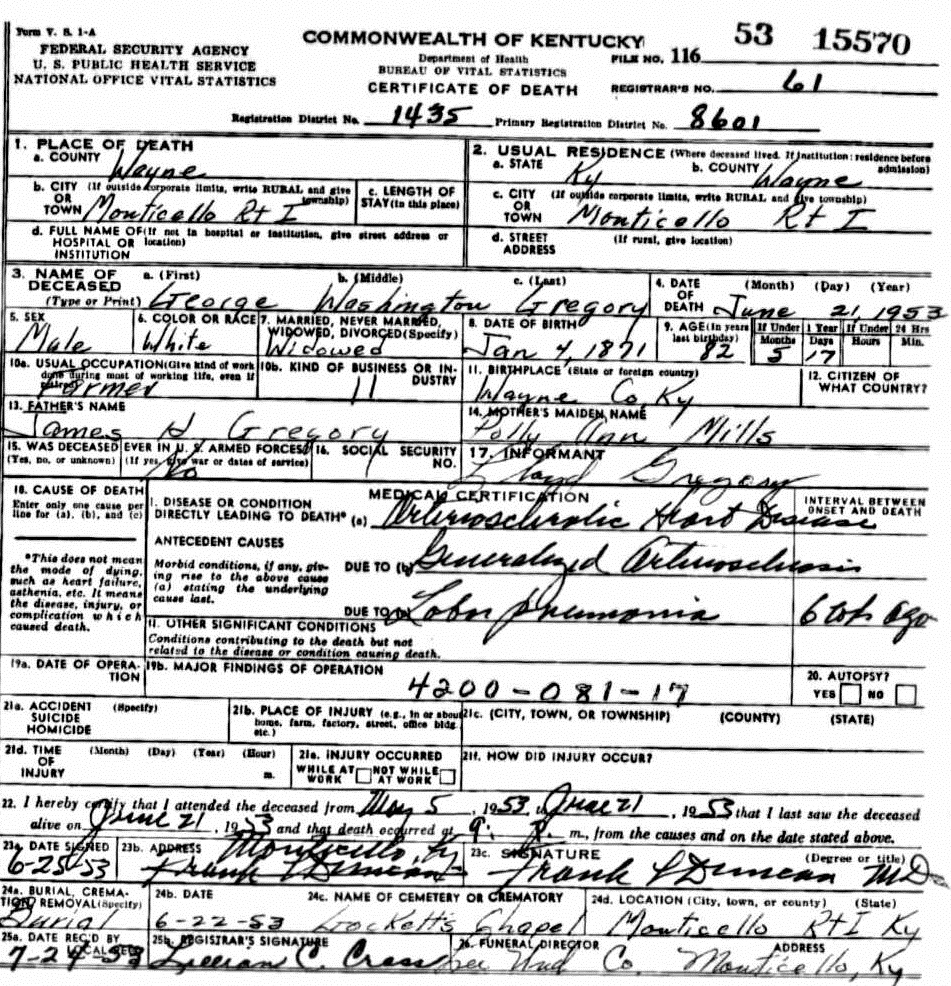 Form V. S. 1-A
FEDERAL SECURITY AGENCY
U. S. PUBLIC HEALTH SERVICE
NATIONAL OFFICE VITAL STATISTICS
COMMONWEALTH OF KENTUCKY
Department of Health
BUREAU OF VITAL STATISTICS
CERTIFICATE OF DEATH
FILE NO. 116 53 15570
REGISTRAR'S NO. 61
Registration District No. 1435 Primary Registration District No. 8601
1. PLACE OF DEATH
a. COUNTY Wayne
b. CITY (If outside corporate limits, write RURAL and give township)
OR
TOWN Monticello Rt I
c. LENGTH OF STAY (in this place)
d. FULL NAME OF (If not in hospital or institution, give street address or location)
HOSPITAL OR
INSTITUTION
2. USUAL RESIDENCE (Where deceased lived. If institution: residence before admission)
a. STATE Ky b. COUNTY Wayne
c. CITY (If outside corporate limits, write RURAL and give township)
OR
TOWN Monticello Rt I
d. STREET ADDRESS (If rural, give location)
3. NAME OF DECEASED (Type or Print)
a. (First) b. (Middle) c. (Last)
George Washington Gregory
4. DATE OF DEATH (Month) (Day) (Year)
June 21, 1953
5. SEX
Male
6. COLOR OR RACE
White
7. MARRIED, NEVER MARRIED, WIDOWED, DIVORCED (Specify)
Widowed
8. DATE OF BIRTH
Jan 4, 1871
9. AGE (In years last birthday) 82
If Under 1 Year Months 5 Days 17
If Under 24 Hrs Hours Min.
10a. USUAL OCCUPATION (Give kind of work done during most of working life, even if retired)
Farmer
10b. KIND OF BUSINESS OR INDUSTRY
11
11. BIRTHPLACE (State or foreign country)
Wayne Co, Ky
12. CITIZEN OF WHAT COUNTRY?
13. FATHER'S NAME
James H Gregory
14. MOTHER'S MAIDEN NAME
Polly Ann Mills
15. WAS DECEASED EVER IN U. S. ARMED FORCES?
(Yes, no, or unknown) (If yes, give war or dates of service)
No
16. SOCIAL SECURITY NO.
17. INFORMANT
Lloyd Gregory
18. CAUSE OF DEATH
Enter only one cause per line for (a), (b), and (c)
*This does not mean the mode of dying, such as heart failure, asthenia, etc. It means the disease, injury, or complication which caused death.
MEDICAL CERTIFICATION
INTERVAL BETWEEN ONSET AND DEATH
I. DISEASE OR CONDITION
DIRECTLY LEADING TO DEATH* (a) Arteriosclerotic Heart Disease
ANTECEDENT CAUSES
Morbid conditions, if any, giving rise to the above cause (a) stating the underlying cause last.
DUE TO (b) Generalized Arteriosclerosis
DUE TO Lobar pneumonia 6 ago
II. OTHER SIGNIFICANT CONDITIONS
Conditions contributing to the death but not related to the disease or condition causing death.
19a. DATE OF OPERATION
19b. MAJOR FINDINGS OF OPERATION
4200-081-17
20. AUTOPSY?
YES NO
21a. ACCIDENT SUICIDE HOMICIDE (Specify)
21b. PLACE OF INJURY (e.g., in or about home, farm, factory, street, office bldg. etc.)
21c. (CITY, TOWN, OR TOWNSHIP) (COUNTY) (STATE)
21d. TIME OF INJURY (Month) (Day) (Year) (Hour) m.
21e. INJURY OCCURRED
WHILE AT WORK NOT WHILE AT WORK
21f. HOW DID INJURY OCCUR?
22. I hereby certify that I attended the deceased from May 5, 1953, June 21, 1953 that I last saw the deceased
alive on June 21, 1953 and that death occurred at 9: P. m., from the causes and on the date stated above.
23a. DATE SIGNED
6-25-53
23b. ADDRESS Monticello, Ky
Frank L Duncan
23c. SIGNATURE (Degree or title)
Frank L Duncan MD
24a. BURIAL, CREMATION, REMOVAL (Specify)
Burial
24b. DATE
6-22-53
24c. NAME OF CEMETERY OR CREMATORY
Lockett's Chapel
24d. LOCATION (City, town, or county) (State)
Monticello Rt I Ky
25a. DATE REC'D BY LOCAL REG.
7-24-53
25b. REGISTRAR'S SIGNATURE
C. Cross
26. FUNERAL DIRECTOR ADDRESS
Und Co. Monticello, Ky